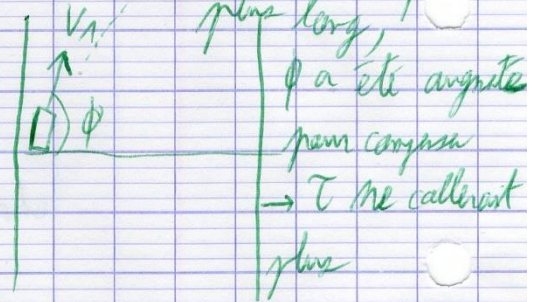 V1
plus long,
ϕ a été augmté
ϕ
pour compenser
→ τ ne collerait
plus